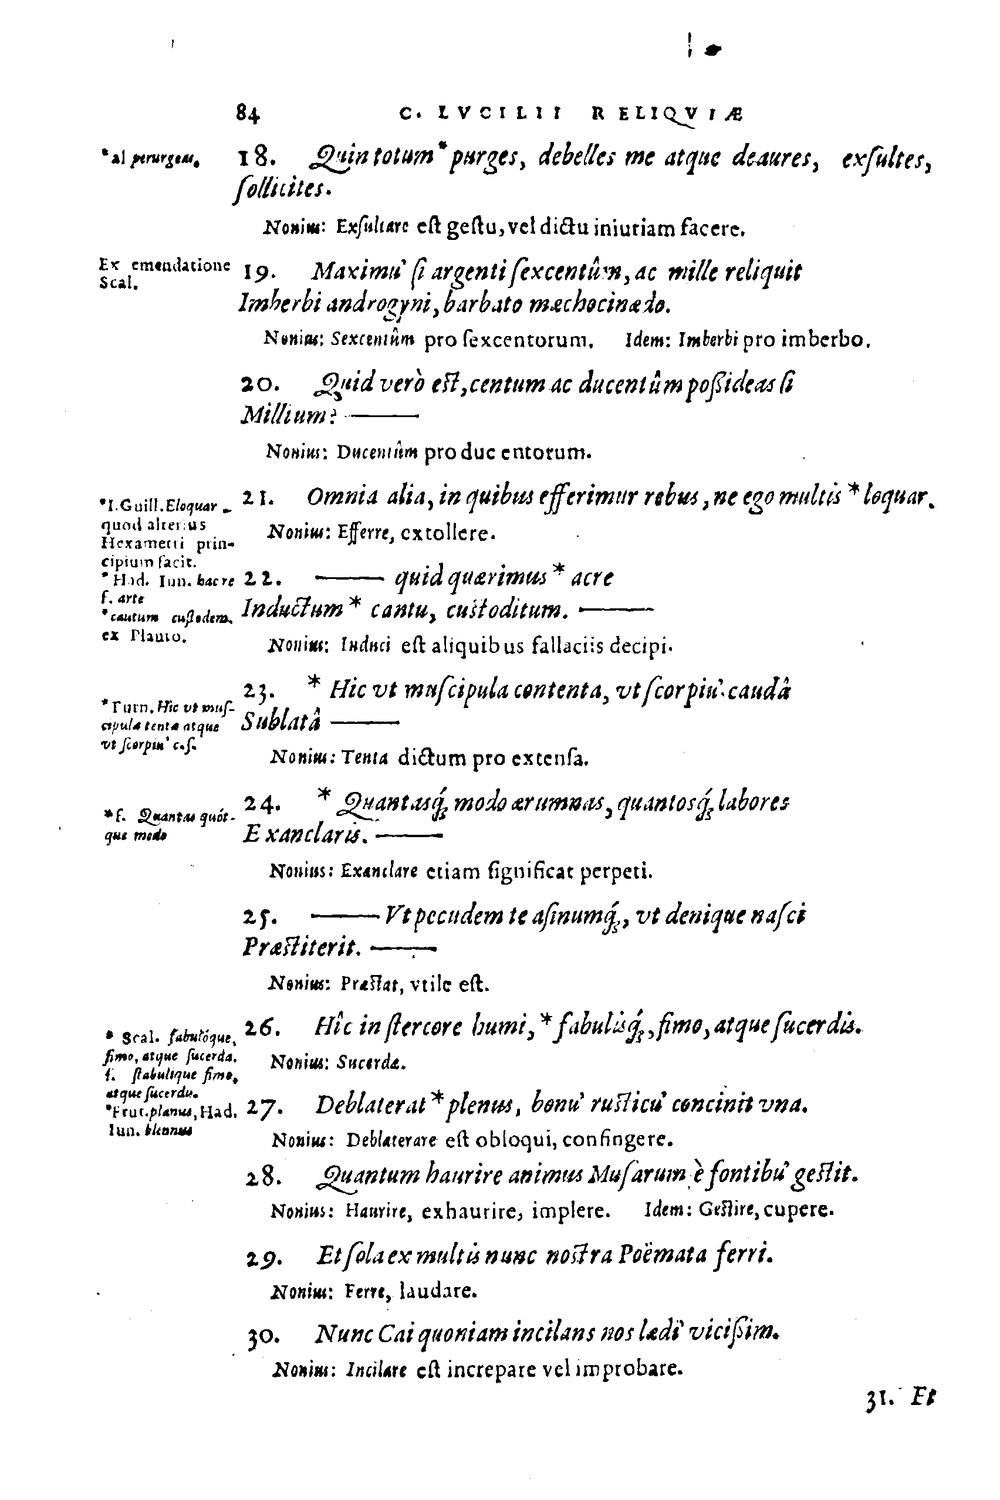 84 C. LVCILII RELIQVIÆ
*al perurgeas,
18. Quin totum * purges, debelles me atque deaures, exſultes,
ſollicites.
Nonius: Exſultare eſt geſtu, vel dictu iniuriam facere.
Ex emendatione
Scal.
19. Maximu' ſi argenti ſexcentûm, ac mille reliquit
Imberbi androgyni, barbato mœchocinædo.
Nonius: Sexcentûm pro ſexcentorum. Idem: Imberbi pro imberbo.
20. Quid verò eſt, centum ac ducentûm poßideas ſi
Millium? ———
Nonius: Ducentûm pro ducentorum.
*I. Guill. Eloquar
quod alterius
Hexametri prin-
cipium facit.
21. Omnia alia, in quibus efferimur rebus, ne ego multis * loquar.
Nonius: Efferre, extollere.
* Had. Iun. bacre
f. arte
*cautum cuſtodem.
ex Plauto.
22. ——— quid quærimus * acre
Inductum * cantu, cuſtoditum. ———
Nonius: Induci eſt aliquibus fallaciis decipi.
*Turn. Hic vt muſ-
cipula tenta atque
vt ſcorpiu' c.ſ.
23. * Hic vt muſcipula contenta, vt ſcorpiu' caudâ
Sublatâ ———
Nonius: Tenta dictum pro extenſa.
*f. Quantas quót-
que modo
24. * Quantasq́; modo ærumnas, quantosq́; labores
Exanclaris. ———
Nonius: Exanclare etiam ſignificat perpeti.
25. ——— Vt pecudem te aſinumq́;, vt denique naſci
Præſtiterit. ———
Nonius: Præſtat, vtile eſt.
* Scal. fabulóque,
fimo, atque ſucerda.
f. ſtabulique fimo,
atque ſucerdu.
26. Hîc in ſtercore humi, * fabulisq́;, fimo, atque ſucerdis.
Nonius: Sucerdæ.
*Frut. planus, Had.
Iun. blennus
27. Deblaterat * plenus, bonu' ruſticu' concinit vna.
Nonius: Deblaterare eſt obloqui, confingere.
28. Quantum haurire animus Muſarum è fontibu' geſtit.
Nonius: Haurire, exhaurire, implere. Idem: Geſtire, cupere.
29. Et ſola ex multis nunc noſtra Poëmata ferri.
Nonius: Ferre, laudare.
30. Nunc Cai quoniam incilans nos lædi' vicißim.
Nonius: Incilare eſt increpare vel improbare.
31. Et